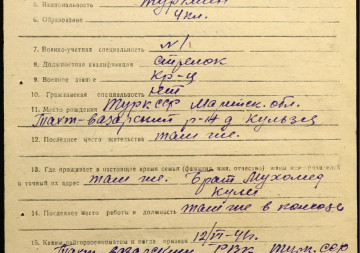 5. Национальность Туркмен
6. Образование 4 кл.
7. Военно-учетная специальность № 1
8. Должностная квалификация Стрелок
9. Военное звание Кр-ц
10. Гражданская специальность нет
11. Место рождения Турк ССР Марийск. обл.
Тахт-Базарский р-н д
12. Последнее место жительства там же.
13. Где проживает в настоящее время семья (фамилия, имя, отчество) жены или родителей
и точный их адрес там же. Брат Мухомед
Кули
14. Последнее место работы и должность там же в колхозе
15. Каким райгорвоенкоматом и когда призван 12/VI-41г.
Тахт-Базарским РВК Турк. ССР